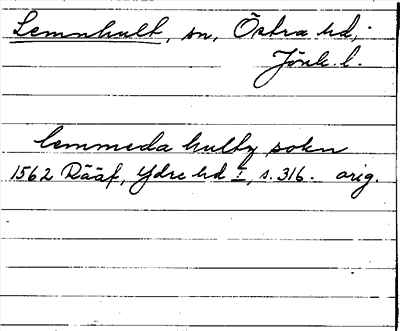 Lemnhult, sn, Östra hd,
Jönk. l.
lemmeda hultz sokn
1562 Rääf, Ydre hd I, s. 316. orig.